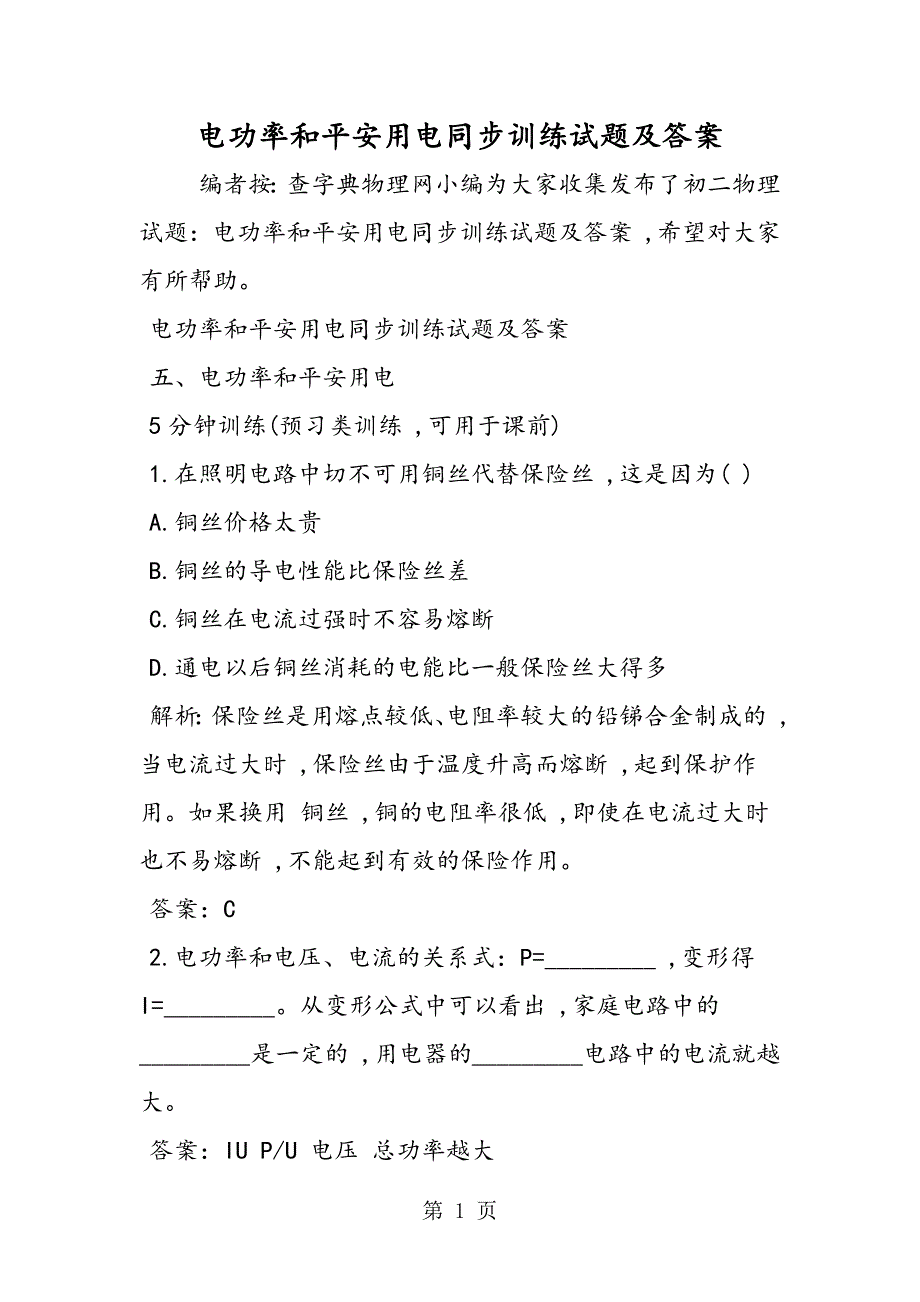 电功率和平安用电同步训练试题及答案
编者按:查字典物理网小编为大家收集发布了初二物理
试题：电功率和平安用电同步训练试题及答案 ,希望对大家
有所帮助。
电功率和平安用电同步训练试题及答案
五、电功率和平安用电
5分钟训练(预习类训练 ,可用于课前)
1.在照明电路中切不可用铜丝代替保险丝 ,这是因为( )
A.铜丝价格太贵
B.铜丝的导电性能比保险丝差
C.铜丝在电流过强时不容易熔断
D.通电以后铜丝消耗的电能比一般保险丝大得多
解析:保险丝是用熔点较低、电阻率较大的铅锑合金制成的 ,
当电流过大时 ,保险丝由于温度升高而熔断 ,起到保护作
用。如果换用 铜丝 ,铜的电阻率很低 ,即使在电流过大时
也不易熔断 ,不能起到有效的保险作用。
答案：C
2.电功率和电压、电流的关系式：P=_________ ,变形得
I=_________。从变形公式中可以看出 ,家庭电路中的
_________是一定的 ,用电器的_________电路中的电流就越
大。
答案：IU P/U 电压 总功率越大
第 1 页